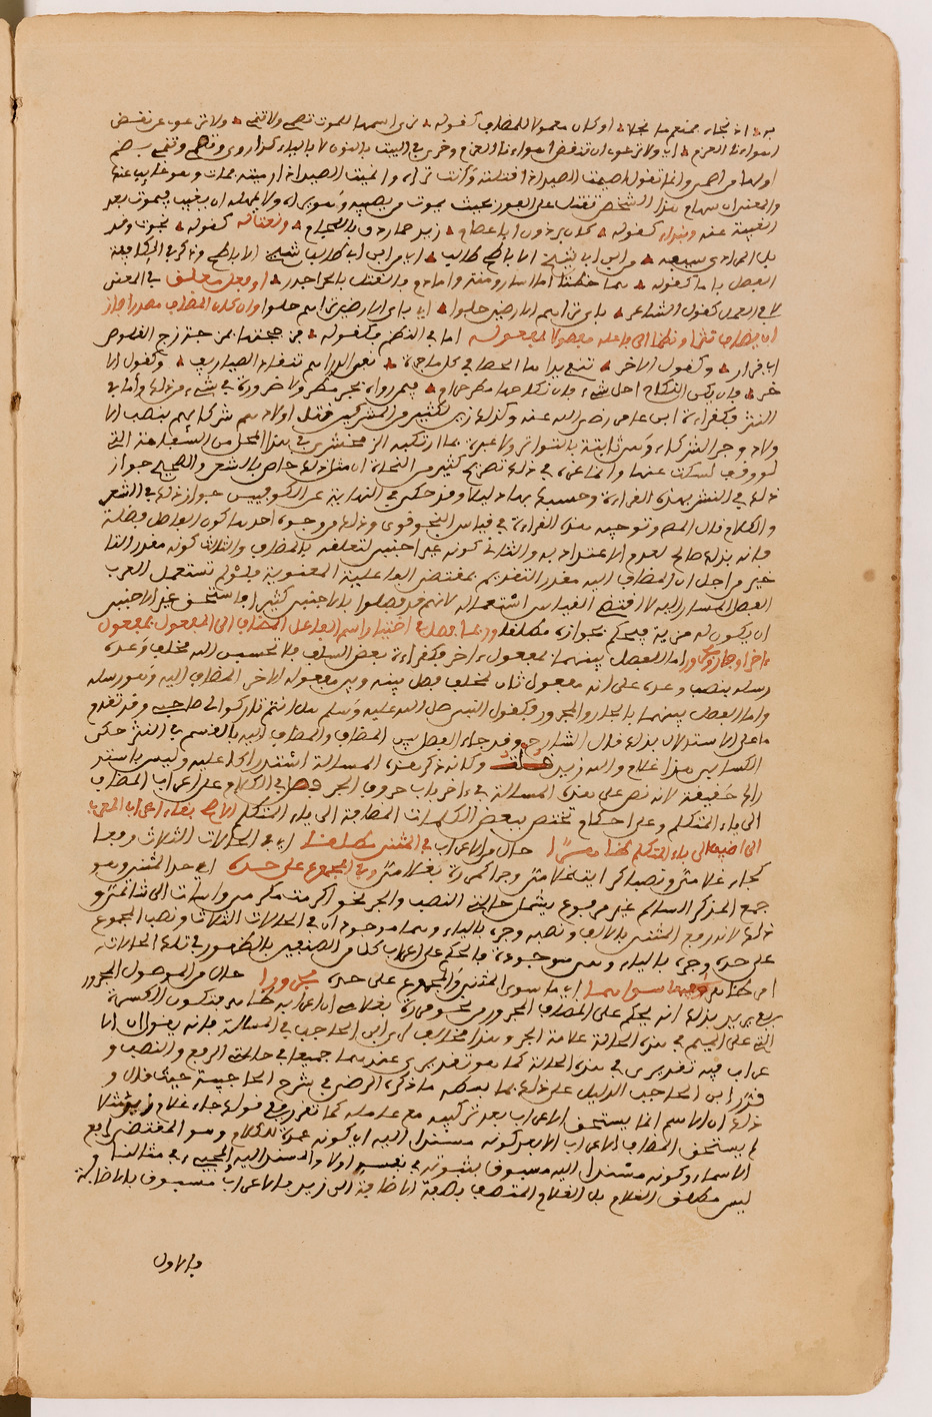 به ۞ اذ نجلاه فنعم ما نجلا ۞ او كان معمولا للمضاف كقوله ۞ ترى اسهما للموت تصمي ولا تنمي ۞ ولا ترعوي عن نقض
اهواءنا العزم ۞ اي ولا ترعوي ان تنقض اهواءنا العزم وخرى في البيت بالنون لا بالياء كذا روي وتصمي وتنمي بضم
اولهما من اصمى وانمى تقول اصميت الصيد اذا قتلته وانت تراه وانميت الصيد اذا رميته فمات وهو غايب عنها
والمعنى ان سهام هذا الشخص تقتل على الفور بحيث يموت من يصيبه وهو يراه ولا يمهله ان يغيب فيموت بعد
الغيبة عنه ونداء كقوله ۞ كان برذون ابا عصام ۞ زيد حمار دق باللجام ۞ ونعتا له كقوله ۞ نجوت وقد
بل المرادي سيفه ۞ من ابن ابي شيخ الاباطح طالب ۞ اي من ابن ابي طالب شيخ الاباطح وذكر في الكافية
الفصل باما كقوله ۞ هما خطتا اما اسار ومنة واما دم والقتل بالحر اجدر ۞ او فعل معلق في المعنى
لا في العمل كقول الشاعر ۞ باي تراهم الارضين حلوا ۞ اي باي الارضين تراهم حلوا وان كان المضاف مصدرا جاز
ان يضاف نثرا ونظما الى فاعله مفصولا بمفعوله اما في النظم فكقوله ۞ فزججتها بمزجة زج القلوص
ابي مزادة ۞ وكقول الاخر ۞ تنفي يداها الحصى في كل هاجرة ۞ نفي الدراهيم تنقاد الصياريف ۞ وكقول الا
خر ۞ فان يكن النكاح احل شيء فان نكاحها مطر حرام ۞ فيمن رواه بجر مطر ولا ضرورة في شيء من ذلك واما في
النثر فكقراءة ابن عامر رضي الله عنه وكذلك زين لكثير من المشركين قتل اولادهم شركائهم بنصب الا
ولاد وجر الشركاء وهي ثابتة بالتواتر ولا عبرة بما ارتكبه الزمخشري في هذا المحل من السفاهة التي
لو وفق لسكت عنها وانما عزه في ذلك تصريح كثير من النحاة ان مثل ذلك خاص بالشعر والصحيح جواز
ذلك في النثر بهذه القراءة وحسبك بها دليلا وقد حكى في النهاية عن الكوفيين جواز ذلك في الشعر
والكلام قال المص وتوجيه هذه القراءة في قياس النحو قوي وذلك من وجوه احدها كون الفاصل فضلة
فانه بذلك صالح لعدم الاعتداد به والثاني كونه غير اجنبي لتعلقه بالمضاف والثالث كونه مقدر التا
خير من اجل ان المضاف اليه مقدر التقديم بمقتضى الفاعلية المعنوية فلو لم تستعمل العرب
الفصل المشار اليه لاقتضى القياس استعماله لانهم قد فصلوا بالاجنبي كثيرا فاستحق غير الاجنبي
ان يكون له مزية فيحكم بجوازه مطلقا وربما فصل في اختيار اسم الفاعل المضاف الى المفعول بمفعول
ءاخر او جار ومجرور اما الفصل بينهما بمفعول ءاخر فكقراءة بعض السلف فلا تحسبن الله مخلف وعده
رسله بنصب وعده على انه مفعول ثان لمخلف فصل بينه وبين مفعوله الاخر المضاف اليه وهو رسله
واما الفصل بينهما بالجار والمجرور فكقول النبي صلى الله عليه وسلم هل انتم تاركوا لي صاحبي وقد تقدم
ما على الاستدلال بذلك قال الشارح وقد جاء الفصل بين المضاف والمضاف اليه بالقسم في النثر حكى
الكسائي هذا غلام والله زيد وكانه ذكر هذه المسالة استدراكا عليه وليس باستد
راك حقيقة لانه نص على هذه المسالة في ءاخر باب حروف الجر فصل في الكلام على اعراب المضاف
الى ياء المتكلم وعلى احكام تختص ببعض الكلمات المضافة الى ياء المتكلم الاصح بقاء اعراب المعرب
اذا اضيف الى ياء المتكلم ظاهرا حال من الاعراب في المثنى مطلقا اي في الحالات الثلاث رفعا
كجاء غلاماي ونصبا كرايت غلامي وجرا كمررت بغلامي وفي المجموع على حده اي حد المثنى وهو
جمع المذكر السالم غير مرفوع يشمل حالتي النصب والجر نحو اكرمت مكرمي واساءت الى شاتمي و
ذلك لان رفع المثنى بالالف ونصبه وجره بالياء وهما موجودان في الحالات الثلاث ونصب المجموع
على حده وجره بالياء وهي موجودة فالحكم على اعراب كل من الصنفين بالظهور في تلك الحالات
امر ظاهر وفيما سواهما اي ما سوى المثنى والمجموع على حده مجرورا حال من الموصول المجرور
بفي يريد بذلك انه يحكم على المضاف المجرور من نحو مررت بغلامي ان اعرابه ظاهر فتكون الكسرة
التي على الميم في هذه الحالة علامة الجر وهذا مخالف لراي ابن الحاجب في المسالة فانه يقول ان الا
عراب فيه تقديري في هذه الحالة كما هو تقديري عندهما جميعا في حالتي الرفع والنصب و
قرر ابن الحاجب الدليل على ذلك بما يبطله ما ذكره الرضي في شرح الحاجبية حيث قال و
ذلك ان الاسم انما يستحق الاعراب بعد تركيبه مع عامله كما تقرر ففي قولك جاء غلام زيد مثلا
لم يستحق المضاف الاعراب الا بعد كونه مسندا اليه اي كونه عمدة الكلام وهو المقتضي لرفع
الاسماء وكونه مسندا اليه مسبوق بثبوته في نفسه اولا والمسند اليه المجيء في مثالنا
ليس مطلق الغلام بل الغلام المتصف بصفة الاضافة الى زيد فالاعراب مسبوق بالاضافة
فالاول